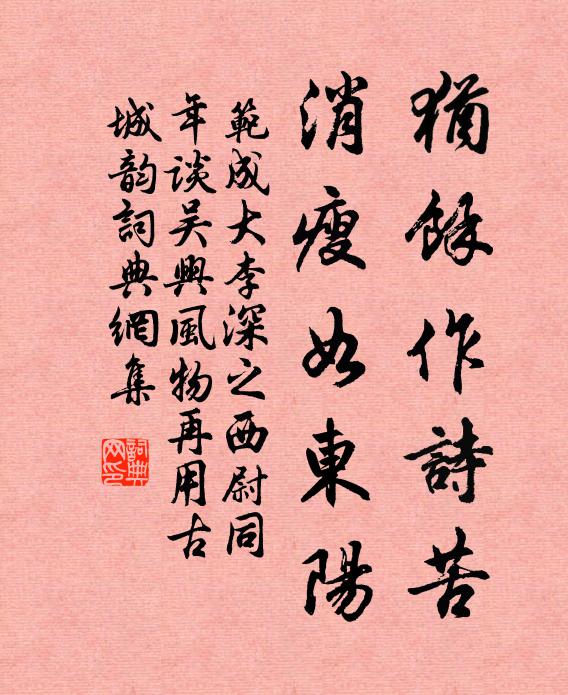 猶餘作詩苦
消瘦如東陽
範成大李深之西尉同
年談吴興風物再用古
城韵詞典網集
詞典
网印